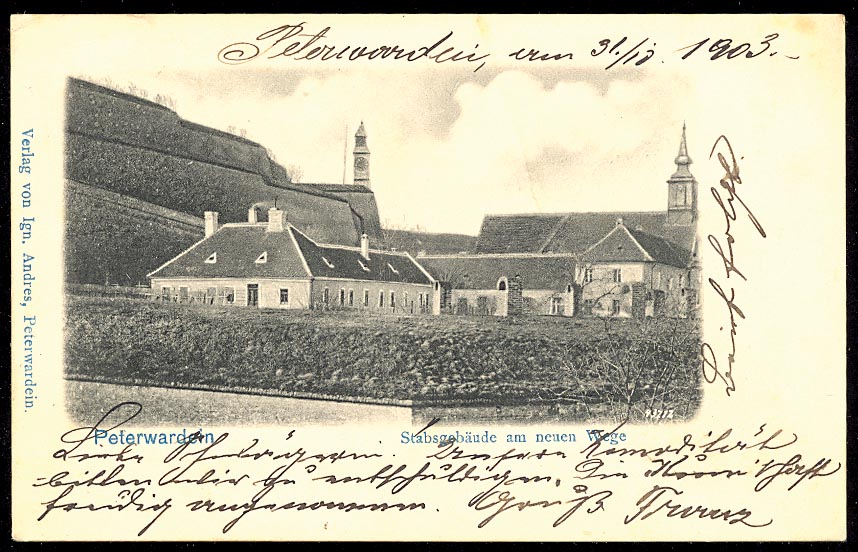 Peterwardein, am 31./10. 1903.
Verlag von Ign. Andres, Peterwardein.
Peterwardein
Stabsgebäude am neuen Wege
Liebe Schwägerin. Unsere Komodität
bitten wir zu entschuldigen. Die
freudig angenommen. Gruß Franz